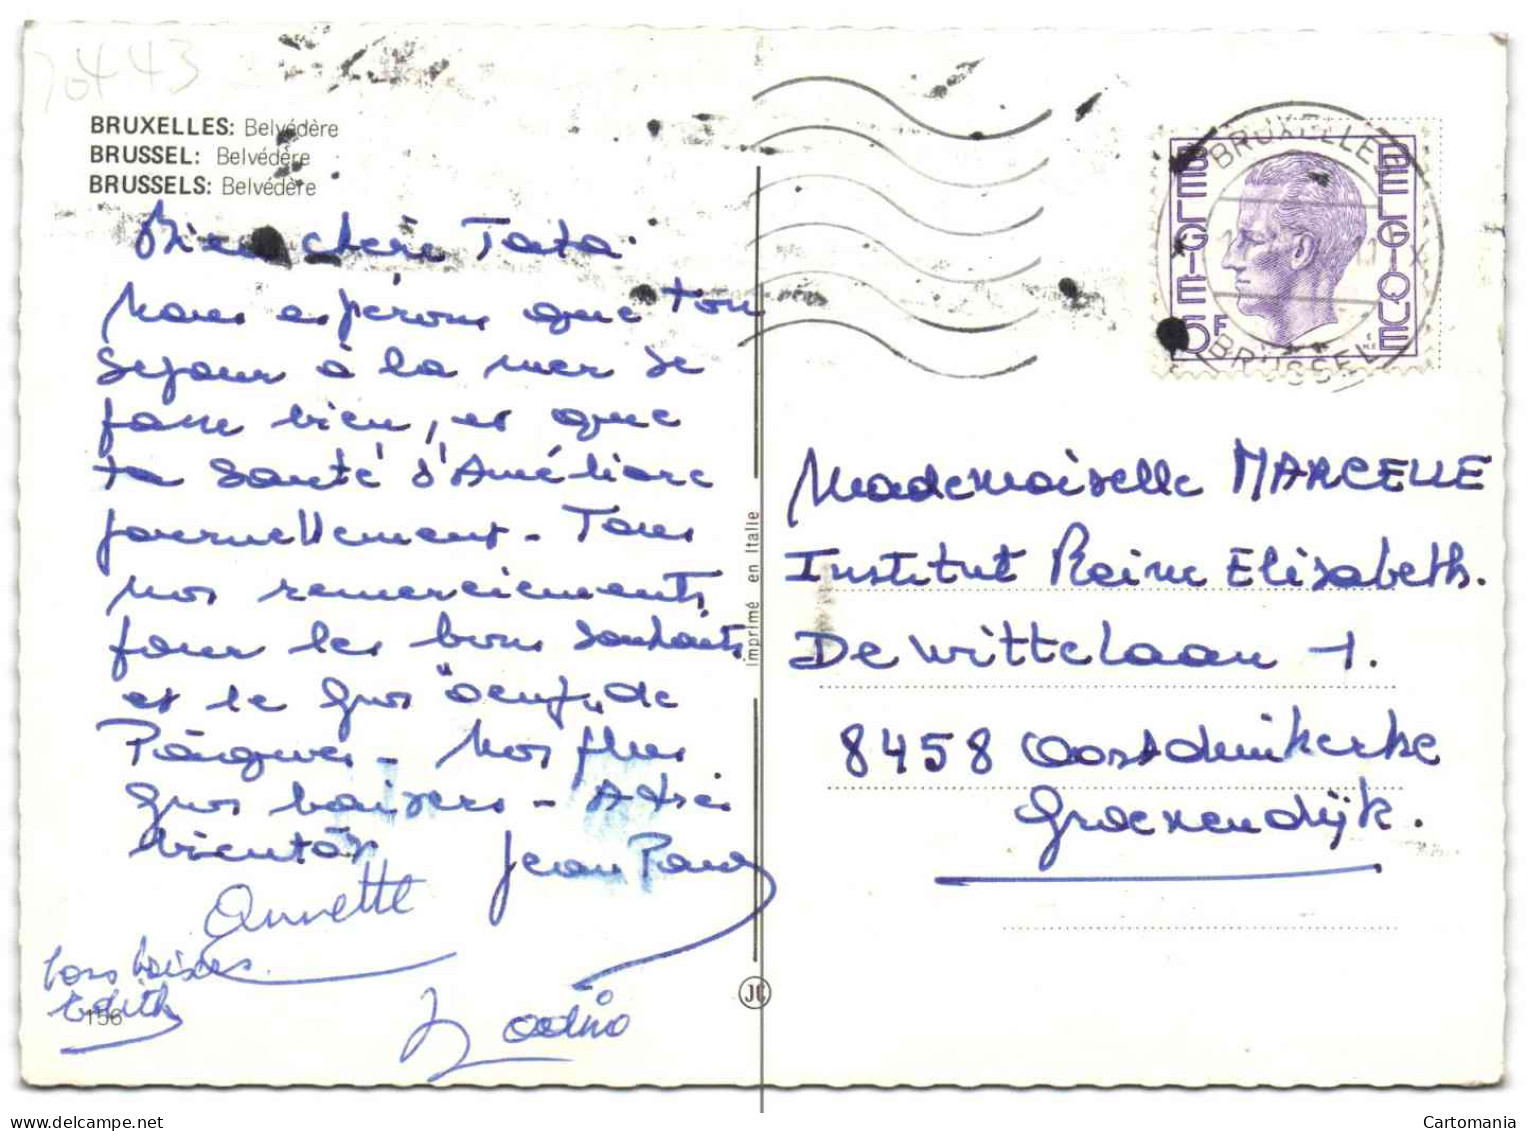 70443
BRUXELLES: Belvédère
BRUSSEL: Belvédère
BRUSSELS: Belvédère
Bien chère Tata.
Nous espérons que ton
séjour à la mer se
passe bien, et que
ta santé s'améliore
journellement - Tous
nos remerciements
pour les bons souhaits
et le gros "oeuf" de
Pâques - Nos plus
gros baisers - A très
bientôt Jean Paul
Annette
bons baisers
Edith
156
imprimé en Italie
JC
BRUXELLES X
BRUSSEL
BELGIE BELGIQUE
5F
Mademoiselle MARCELLE
Institut Reine Elisabeth.
De Wittelaan 1.
8458 Oostduinkerke
Groenendijk.
Cartomania